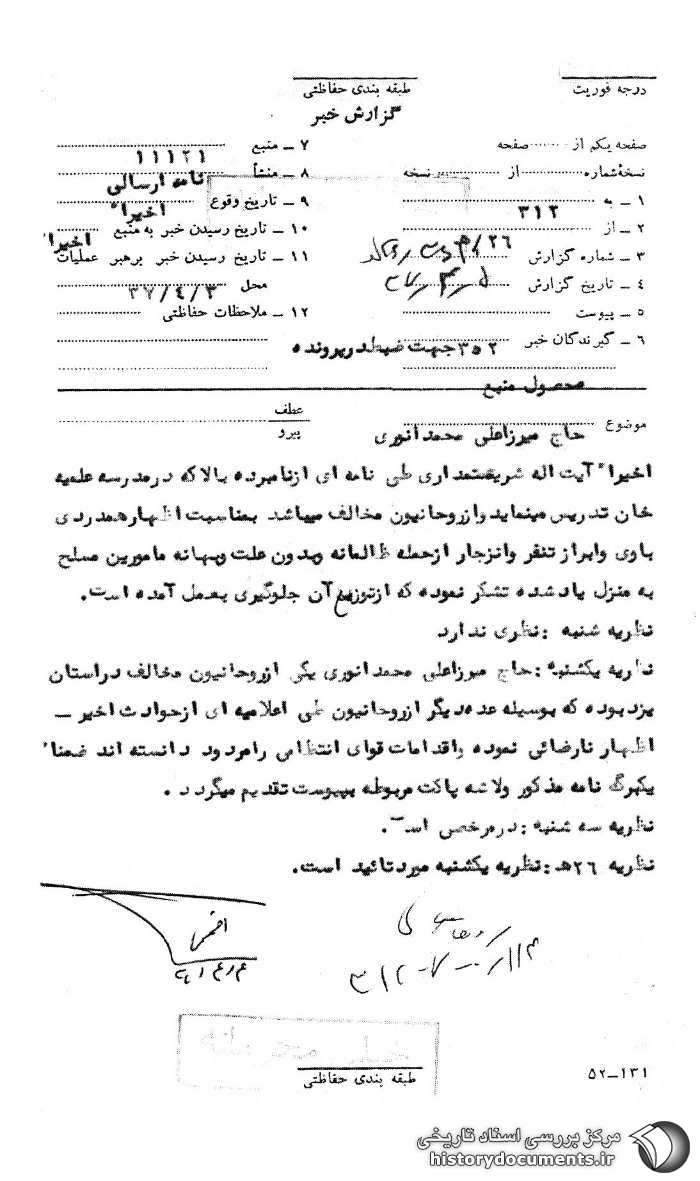 درجه فوریت
طبقه بندی حفاظتی
گزارش خبر
صفحه یکم از صفحه
نسخهٔ شماره از نسخه
۱ ــ به
۲ ــ از ۳۱۲
۳ ــ شماره گزارش
۴ ــ تاریخ گزارش
۵ ــ پیوست
۶ ــ گیرندگان خبر ۳۵۲ جهت ضبط در پرونده
۷ ــ منبع ۱۱۱۲۱
۸ ــ منشأ نامه ارسالی
۹ ــ تاریخ وقوع اخیرا"
۱۰ ــ تاریخ رسیدن خبر به منبع اخیرا"
۱۱ ــ تاریخ رسیدن خبر برهبر عملیات
محل ۳۷/۴/۳
۱۲ ــ ملاحظات حفاظتی
محصول منبع
موضوع حاج میرزاعلی محمد انوری
عطف
پیرو
اخیرا" آیت اله شریعتمداری طی نامه ای ازنامبرده بالاکه درمدرسه علمیه
خان تدریس مینماید وازروحانیون مخالف میباشد بمناسبت اظهارهمدردی
باوی وابراز تنفر وانزجار ازحمله ظالمانه وبدون علت وبهانه مامورین مسلح
به منزل یادشده تشکر نموده که ازتوزیع آن جلوگیری بعمل آمده است.
نظریه شنبه : نظری ندارد
نظریه یکشنبه : حاج میرزاعلی محمد انوری یکی ازروحانیون مخالف دراستان
یزد بوده که بوسیله عده دیگر ازروحانیون طی اعلامیه ای ازحوادث اخیر ــ
اظهار نارضائی نموده واقدامات قوای انتظامی رامردود دانسته اند ضمنا"
یکبرگ نامه مذکور ولاشه پاکت مربوطه بپیوست تقدیم میگردد .
نظریه سه شنبه : درمرخصی است.
نظریه ۲۶هـ : نظریه یکشنبه موردتائید است.
خیلی محرمانه
طبقه بندی حفاظتی
۵۲ــ۱۳۱
مرکز بررسی اسناد تاریخی
historydocuments.ir